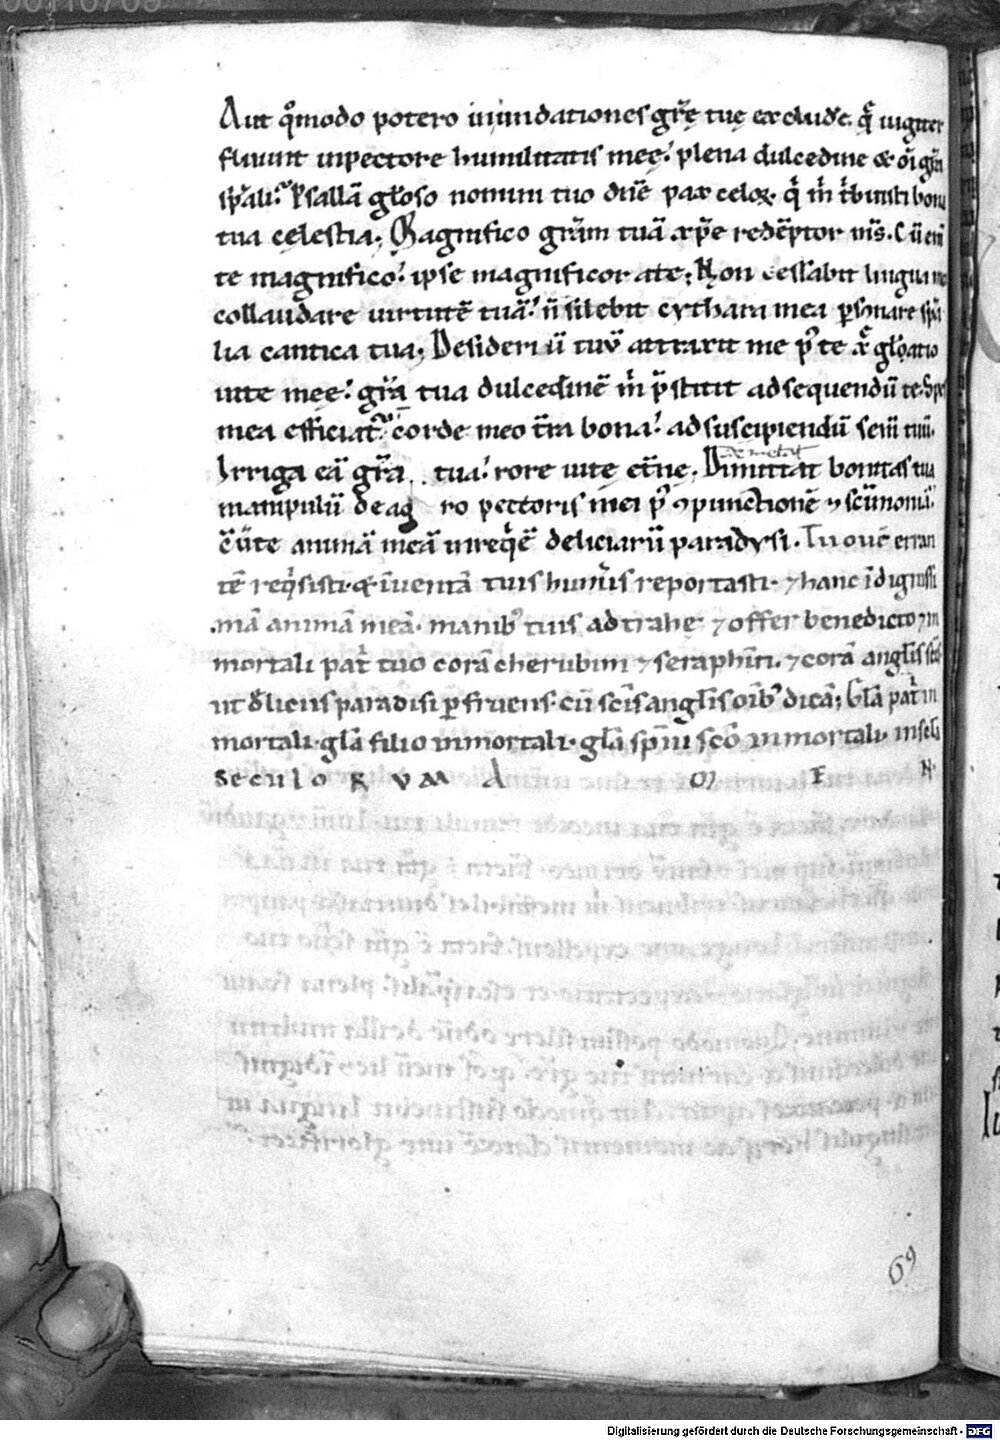 Aut qͦmodo potero inundationes gr̄ę tuę excludẽ. q̄ iugiter
fluunt inpectore humilitatis meę. plena dulcedine & oī gr̄a
sp̄ali. Psallā głoso nomini tuo dn̄e pax celoꝝ. qi m̄ tͥbuisti bona
tua celestia; Magnifico gr̄am tuā xp̄e redēptor nr̄s. Cū eni
te magnifico. ipse magnificor a te; Non cessabit lingua me
collaudare uirtutē tuā. ñ silebit cythara mea psonare spͥa
lia cantica tua; Desideriū tuū attraxit me p te & głoatio
uite meę. gr̄a tua dulcedinē m̄ p̄stitit ad sequendū te. Spe
mea efficiat corde meo tr̄a bona. ad suscipiendū sem̄ tuū.
Irriga eā gr̄a tua. rore uite et̄ne. Dimittat bonitas tua
manipulū de ag ro pectoris mei p ꝯpunctionē ⁊ scīmoniā.
animā meā in reqͥē deliciarū paradysi. Tu ouē erran
tē reqͥsisti. & īuentā tuis hum̄is reportasti. ⁊ hanc īdignissi
mā animā meā. manibꝰ tuis adtrahe ⁊ offer benedicto ⁊ in
mortali patͥ tuo corā cherubim ⁊ seraphin. ⁊ corā angłis sc̄is
ut d̄liciis paradisi ꝑfruens. cū sc̄is angłis oībꝰ dicā; Głā patͥ in
mortali. głā filio inmortali. głā sp̄iu sc̄o inmortali. in scłi
seculoRVM A M E N.
69
Digitalisierung gefördert durch die Deutsche Forschungsgemeinschaft - DFG